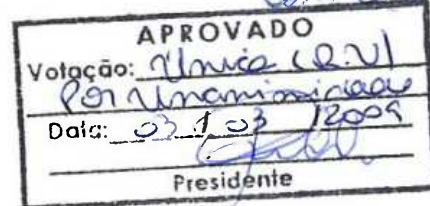 APROVADO
Votação: Unica (R.U)
Por Unanimidade
Data: 03 / 03 /2009
Presidente